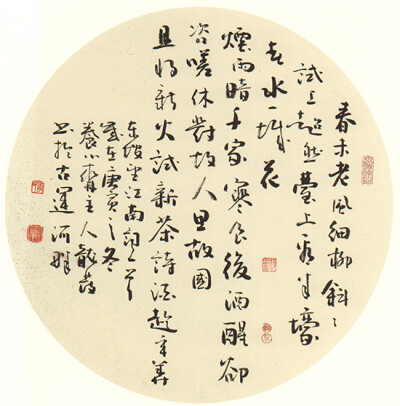 春未老風細柳斜〻
試上超然臺上看半壕
春水一城花
煙雨暗千家寒食後酒醒卻
咨嗟休對故人思故國
且將新火試新茶詩酒趁年華
东坡望江南詞一首
歲在庚寅之冬
養小齋主人
书於古運河畔